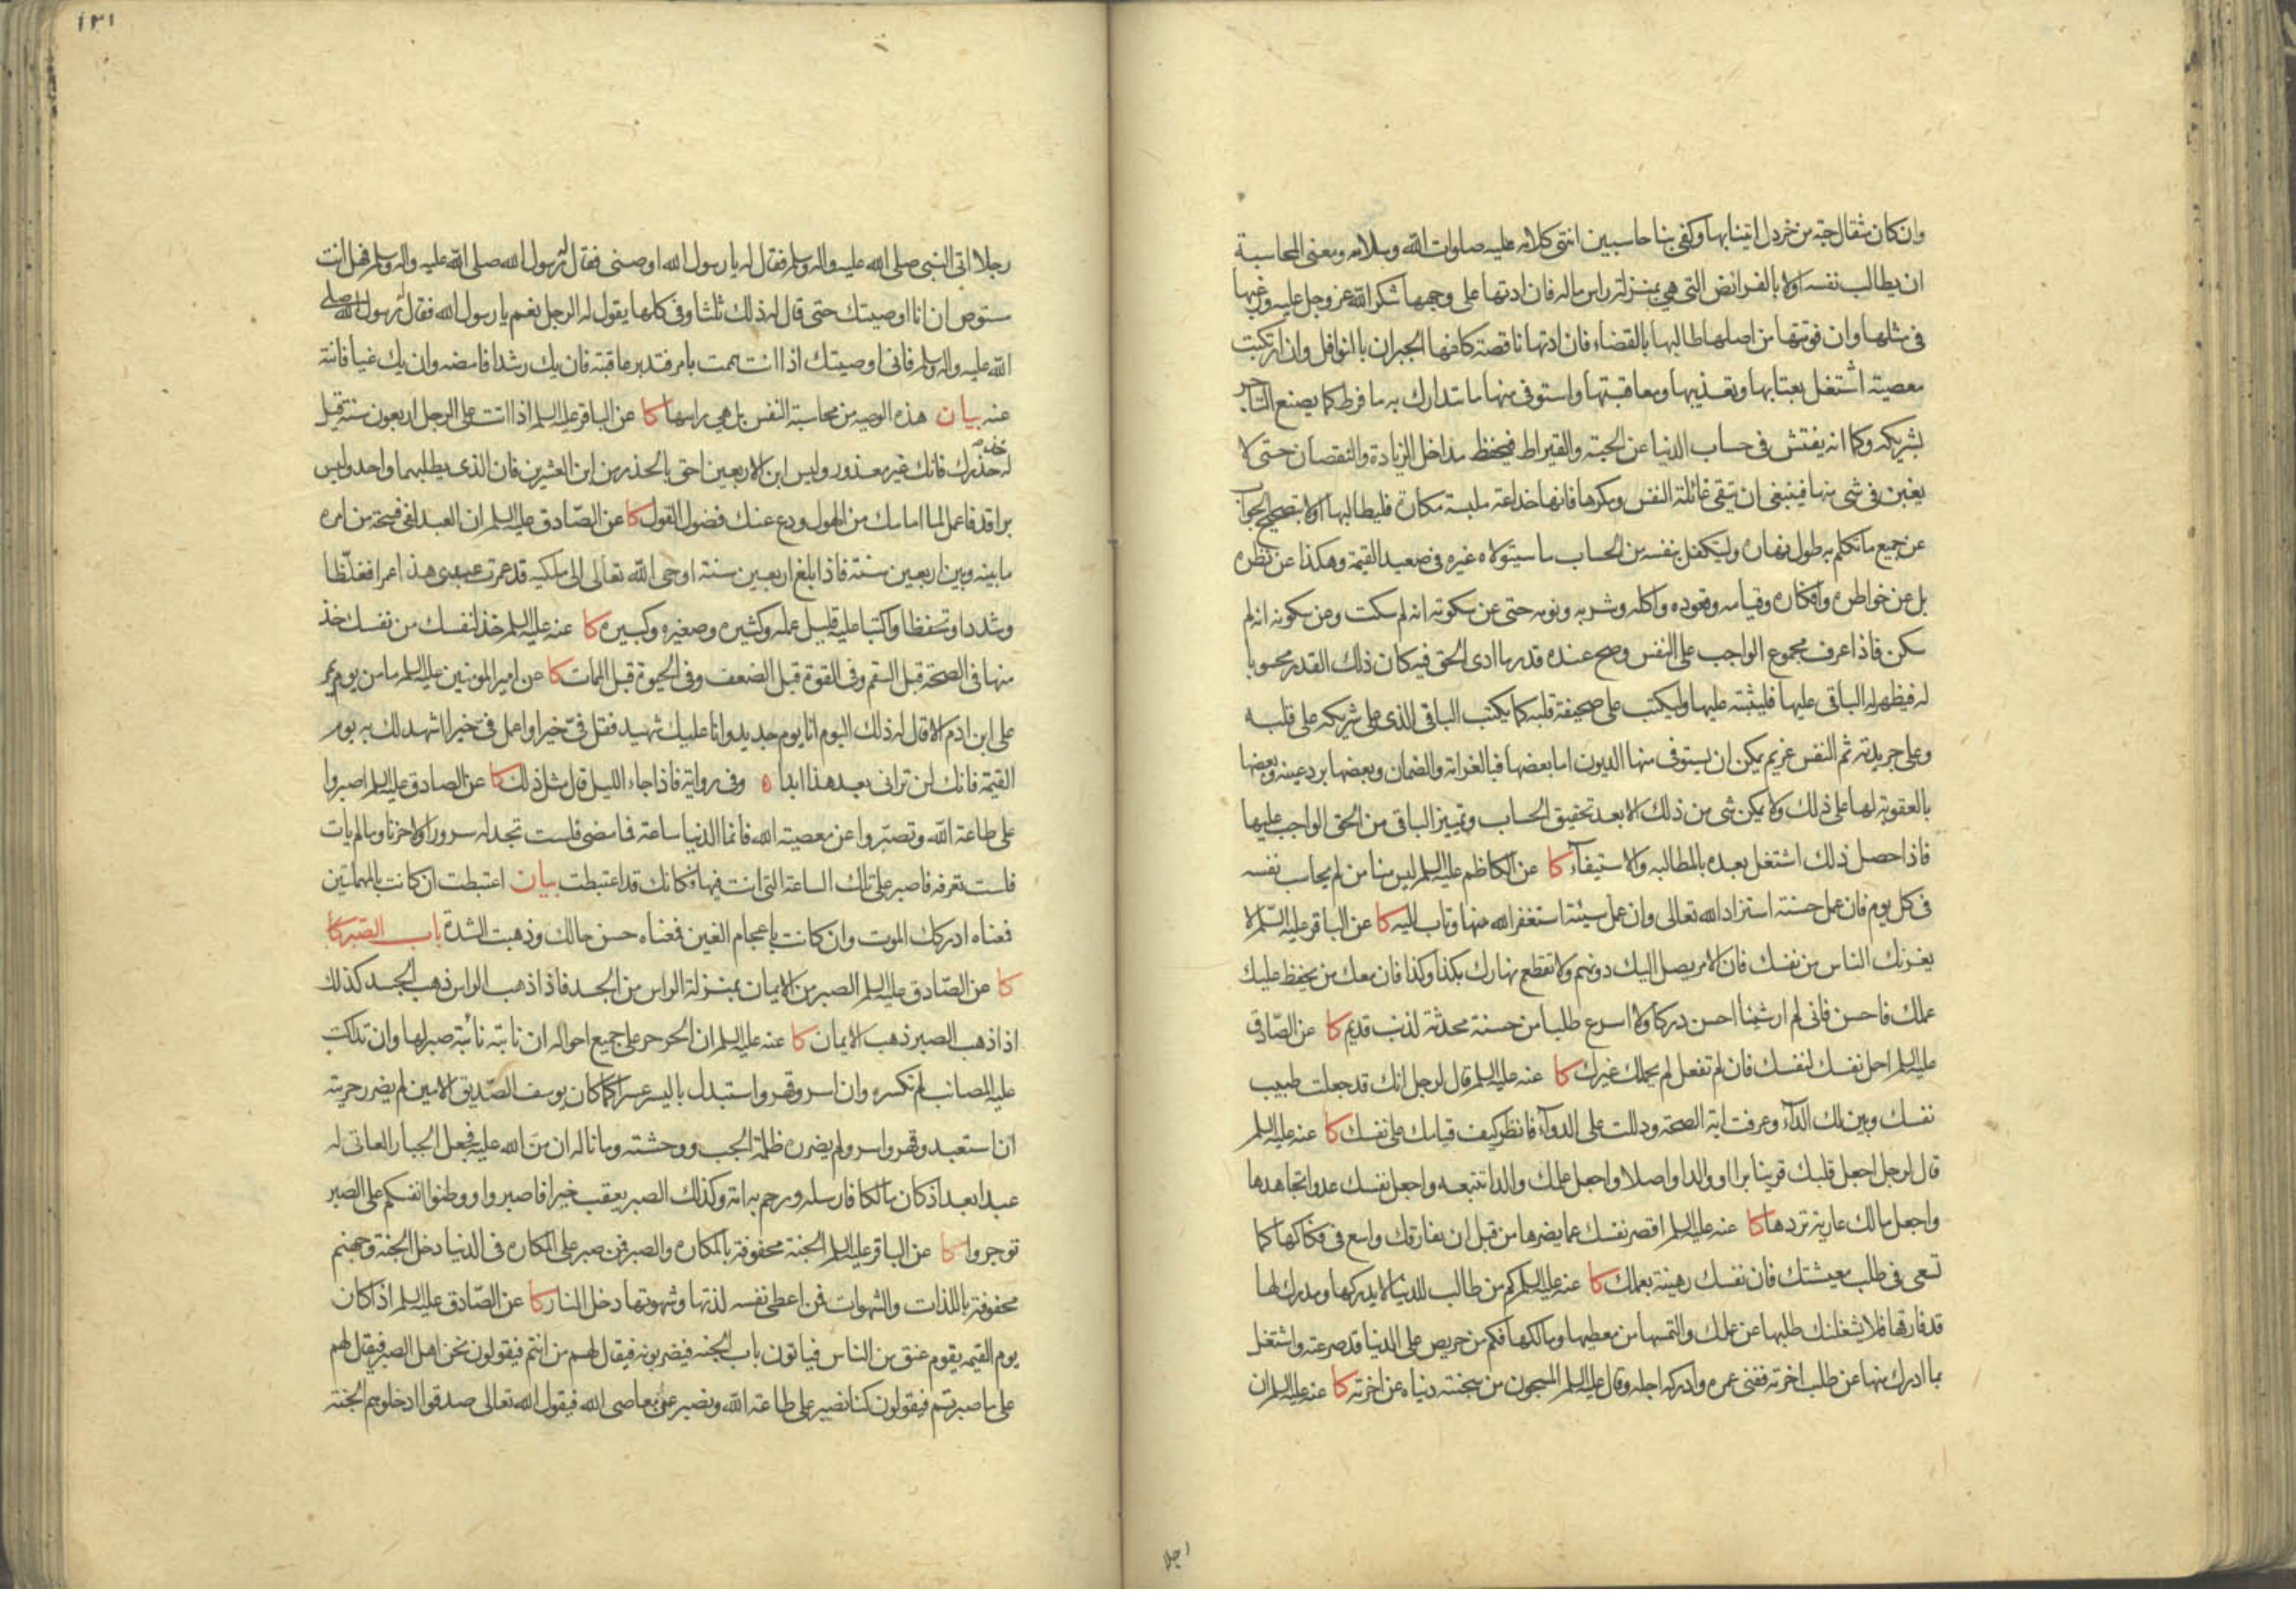 وان كان مثقال حبة من خردل اتينا بها وكفى بنا حاسبين انتهى كلامه عليه صلوات الله وسلامه ومعنى المحاسبة
ان يطالب نفسه اولا بالفرائض التى هي بمنزلة راس ماله فان ادتها على وجهها شكر الله عز وجل عليه ورغبها
فى مثلها وان فوتتها من اصلها طالبها بالقضاء فان ادتها ناقصة كلفها الجبران بالنوافل وان ارتكبت
معصية اشتغل بعتابها وتعذيبها ومعاقبتها واستوفى منها ما يتدارك به ما فرط كما يصنع التاجر
بشريكه وكما انه يفتش فى حساب الدنيا عن الحبة والقيراط فيحفظ مداخل الزيادة والنقصان حتى لا
يغبن فى شى منها فينبغى ان يتقى غائلة النفس ومكرها فانها خداعة ملبسة مكارة فليطالبها اولا بتصحيح الجواب
عن جميع ما تكلم به طول نهاره وليتكفل بنفسه من الحساب ما سيتولاه غيره فى صعيد القيمة وهكذا عن نظره
بل عن خواطره وافكاره وقيامه وقعوده واكله وشربه ونومه حتى عن سكوته انه لم سكت وعن سكونه انه لم
سكن فاذا عرف مجموع الواجب على النفس وصح عنده قدر ما ادى الحق فيه كان ذلك القدر محسوبا
له فيظهر له الباقى عليها فليثبته عليها وليكتب على صحيفة قلبه كما يكتب الباقى الذى على شريكه على قلبه
وعلى جريدته ثم النفس غريم يمكن ان يستوفى منها الديون اما بعضها فبالغرامة والضمان وبعضها برد عينه وبعضها
بالعقوبة لها على ذلك ولا يمكن شى من ذلك الا بعد تحقيق الحساب وتمييز الباقى من الحق الواجب عليها
فاذا حصل ذلك اشتغل بعده بالمطالبه والاستيفاء كا عن الكاظم عليه السلم ليس منا من لم يحاسب نفسه
فى كل يوم فان عمل حسنة استزاد الله تعالى وان عمل سيئة استغفر الله منها وتاب اليه كا عن الباقر عليه السلم لا
يغرنك الناس من نفسك فان الامر يصل اليك دونهم ولا تقطع نهارك بكذا وكذا فان معك من يحفظ عليك
عملك فاحسن فانى لم ار شيئا احسن دركا ولا اسرع طلبا من حسنة محدثة لذنب قديم كا عن الصادق
عليه السلم احمل نفسك لنفسك فان لم تفعل لم يحملك غيرك كا عنه عليه السلم قال لرجل انك قد جعلت طبيب
نفسك وبين لك الداء وعرفت اية الصحة ودللت على الدواء فانظر كيف قيامك على نفسك كا عنه عليه السلم
قال لرجل اجعل قلبك قرينا برا او ولدا واصلا واجعل عملك والدا تتبعه واجعل نفسك عدوا تجاهدها
واجعل مالك عارية تردها كا عنه عليه السلم اقصر نفسك عما يضرها من قبل ان تفارقك واسع فى فكاكها كما
تسعى فى طلب معيشتك فان نفسك رهينة بعملك كا عنه عليه السلم كم من طالب للدنيا لا يدركها ومدرك لها
قد فارقها فلا يشغلنك طلبها عن عملك والتمسها من معطيها ومالكها فكم من حريص على الدنيا قد صرعته واشتغل
بما ادرك منها عن طلب اخرته ففنى عمره وادركه اجله وقال عليه السلم المسجون من سجنته دنياه عن اخرته كا عنه عليه السلم ان
١٣١
رجلا اتى النبى صلى الله عليه واله وسلم فقال له يا رسول الله اوصنى فقال له رسول الله صلى الله عليه واله وسلم فهل انت
مستوص ان انا اوصيتك حتى قال له ذلك ثلثا وفى كلها يقول له الرجل نعم يا رسول الله فقال له رسول الله صلى
الله عليه واله وسلم فانى اوصيتك اذا انت هممت بامر فتدبر عاقبته فان يك رشدا فامضه وان يك غيا فانته
عنه بيان هذه الوصيه من محاسبة النفس بل هي راسها كا عن الباقر عليه السلم اذا اتت على الرجل اربعون سنة قيل
له خذ حذرك فانك غير معذور وليس ابن الاربعين احق بالحذر من ابن العشرين فان الذى يطلبهما واحد وليس
براقد فاعمل لما امامك من الهول ودع عنك فضول القول كا عن الصادق عليه السلم ان العبد لفى فسحة من امره
ما بينه وبين اربعين سنة فاذا بلغ اربعين سنة اوحى الله تعالى الى ملكيه قد عمرت عبدى هذا عمرا فغلظا
وشددا وتحفظا واكتبا عليه قليل عمله وكثيره وصغيره وكبيره كا عنه عليه السلم خذ لنفسك من نفسك خذ
منها فى الصحة قبل السقم وفى القوة قبل الضعف وفى الحيوة قبل الممات كا عن امير المومنين عليه السلم ما من يوم يمر
على ابن ادم الا قال له ذلك اليوم انا يوم جديد وانا عليك شهيد فقل فىّ خيرا واعمل فىّ خيرا اشهد لك به يوم
القيمة فانك لن ترانى بعد هذا ابدا ه وفى رواية فاذا جاء الليل قال مثل ذلك كا عن الصادق عليه السلم اصبروا
على طاعة الله وتصبروا عن معصية الله فانما الدنيا ساعة فما مضى فلست تجد له سرورا ولا حزنا وما لم يات
فلست تعرفه فاصبر على تلك الساعة التى انت فيها فكانك قد اعتبطت بيان اعتبطت ان كانت بالمهملتين
فمعناه ادركك الموت وان كانت باعجام الغين فمعناه حسن حالك وذهبت الشدة باب الصبر كا
كا عن الصادق عليه السلم الصبر من الايمان بمنزلة الراس من الجسد فاذا ذهب الراس ذهب الجسد كذلك
اذا ذهب الصبر ذهب الايمان كا عنه عليه السلم ان الحر حر على جميع احواله ان نابته نائبة صبر لها وان تداكت
عليه المصائب لم تكسره وان اسر وقهر واستبدل باليسر عسرا كما كان يوسف الصديق الامين لم يضرر حريته
ان استعبد وقهر واسر ولم يضرره ظلمة الجب ووحشته وما ناله ان منّ الله عليه فجعل الجبار العاتى له
عبدا بعد اذ كان مالكا فارسله ورحم به امة وكذلك الصبر يعقب خيرا فاصبروا ووطنوا انفسكم على الصبر
توجروا كا عن الباقر عليه السلم الجنة محفوفة بالمكاره والصبر فمن صبر على المكاره فى الدنيا دخل الجنة وجهنم
محفوفة باللذات والشهوات فمن اعطى نفسه لذتها وشهوتها دخل النار كا عن الصادق عليه السلم اذا كان
يوم القيمه يقوم عنق من الناس فياتون باب الجنه فيضربونه فيقال لهم من انتم فيقولون نحن اهل الصبر فيقال لهم
على ما صبرتم فيقولون كنا نصبر على طاعة الله ونصبر عن معاصى الله فيقول الله تعالى صدقوا ادخلوهم الجنة